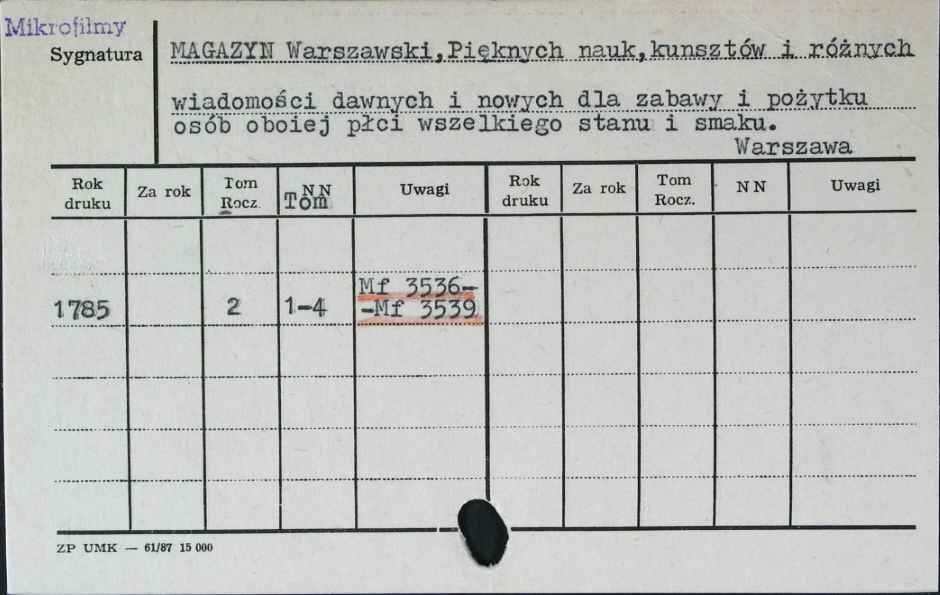 Mikrofilmy
Sygnatura
MAGAZYN Warszawski, Pięknych nauk, kunsztów i różnych
wiadomości dawnych i nowych dla zabawy i pożytku
osób oboiej płci wszelkiego stanu i smaku.
Warszawa
Rok druku Za rok Tom Rocz. NN Tom Uwagi Rok druku Za rok Tom Rocz. NN Uwagi
Mf 3536-
1785 2 1-4 -Mf 3539
ZP UMK — 61/87 15 000